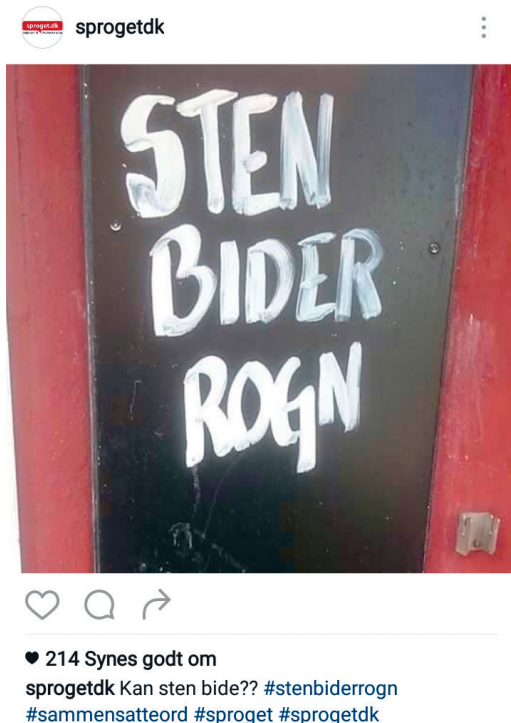 sproget.dk
sprogetdk
STEN
BIDER
ROGN
214 Synes godt om
sprogetdk Kan sten bide?? #stenbiderrogn
#sammensatteord #sproget #sprogetdk